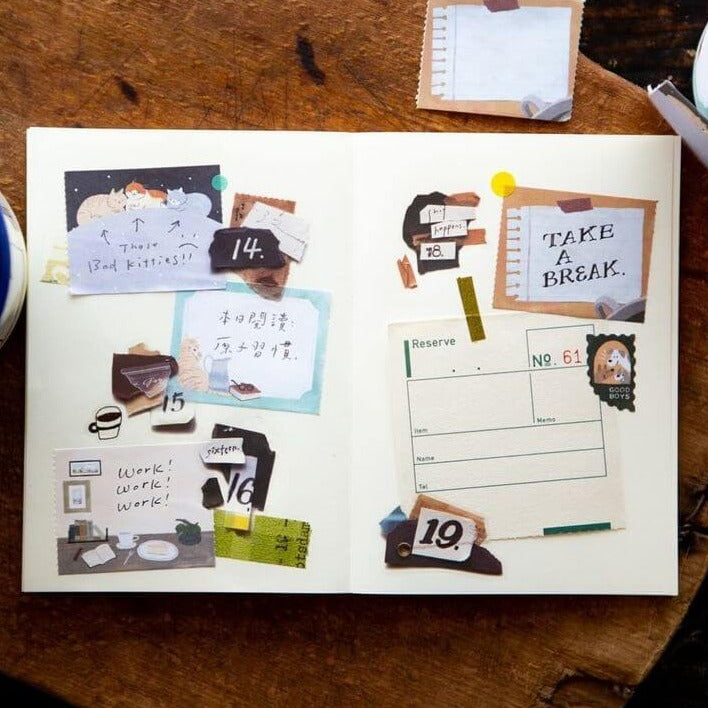 Those
Bad Kitties!!
14.
本日閱讀:
原子習慣.
15
Work!
Work!
Work!
sixteen.
16
shit
happens.
18.
TAKE
A
BREAK.
Reserve
No. 61
Item
Memo
Name
Tel
GOOD
BOYS
19.